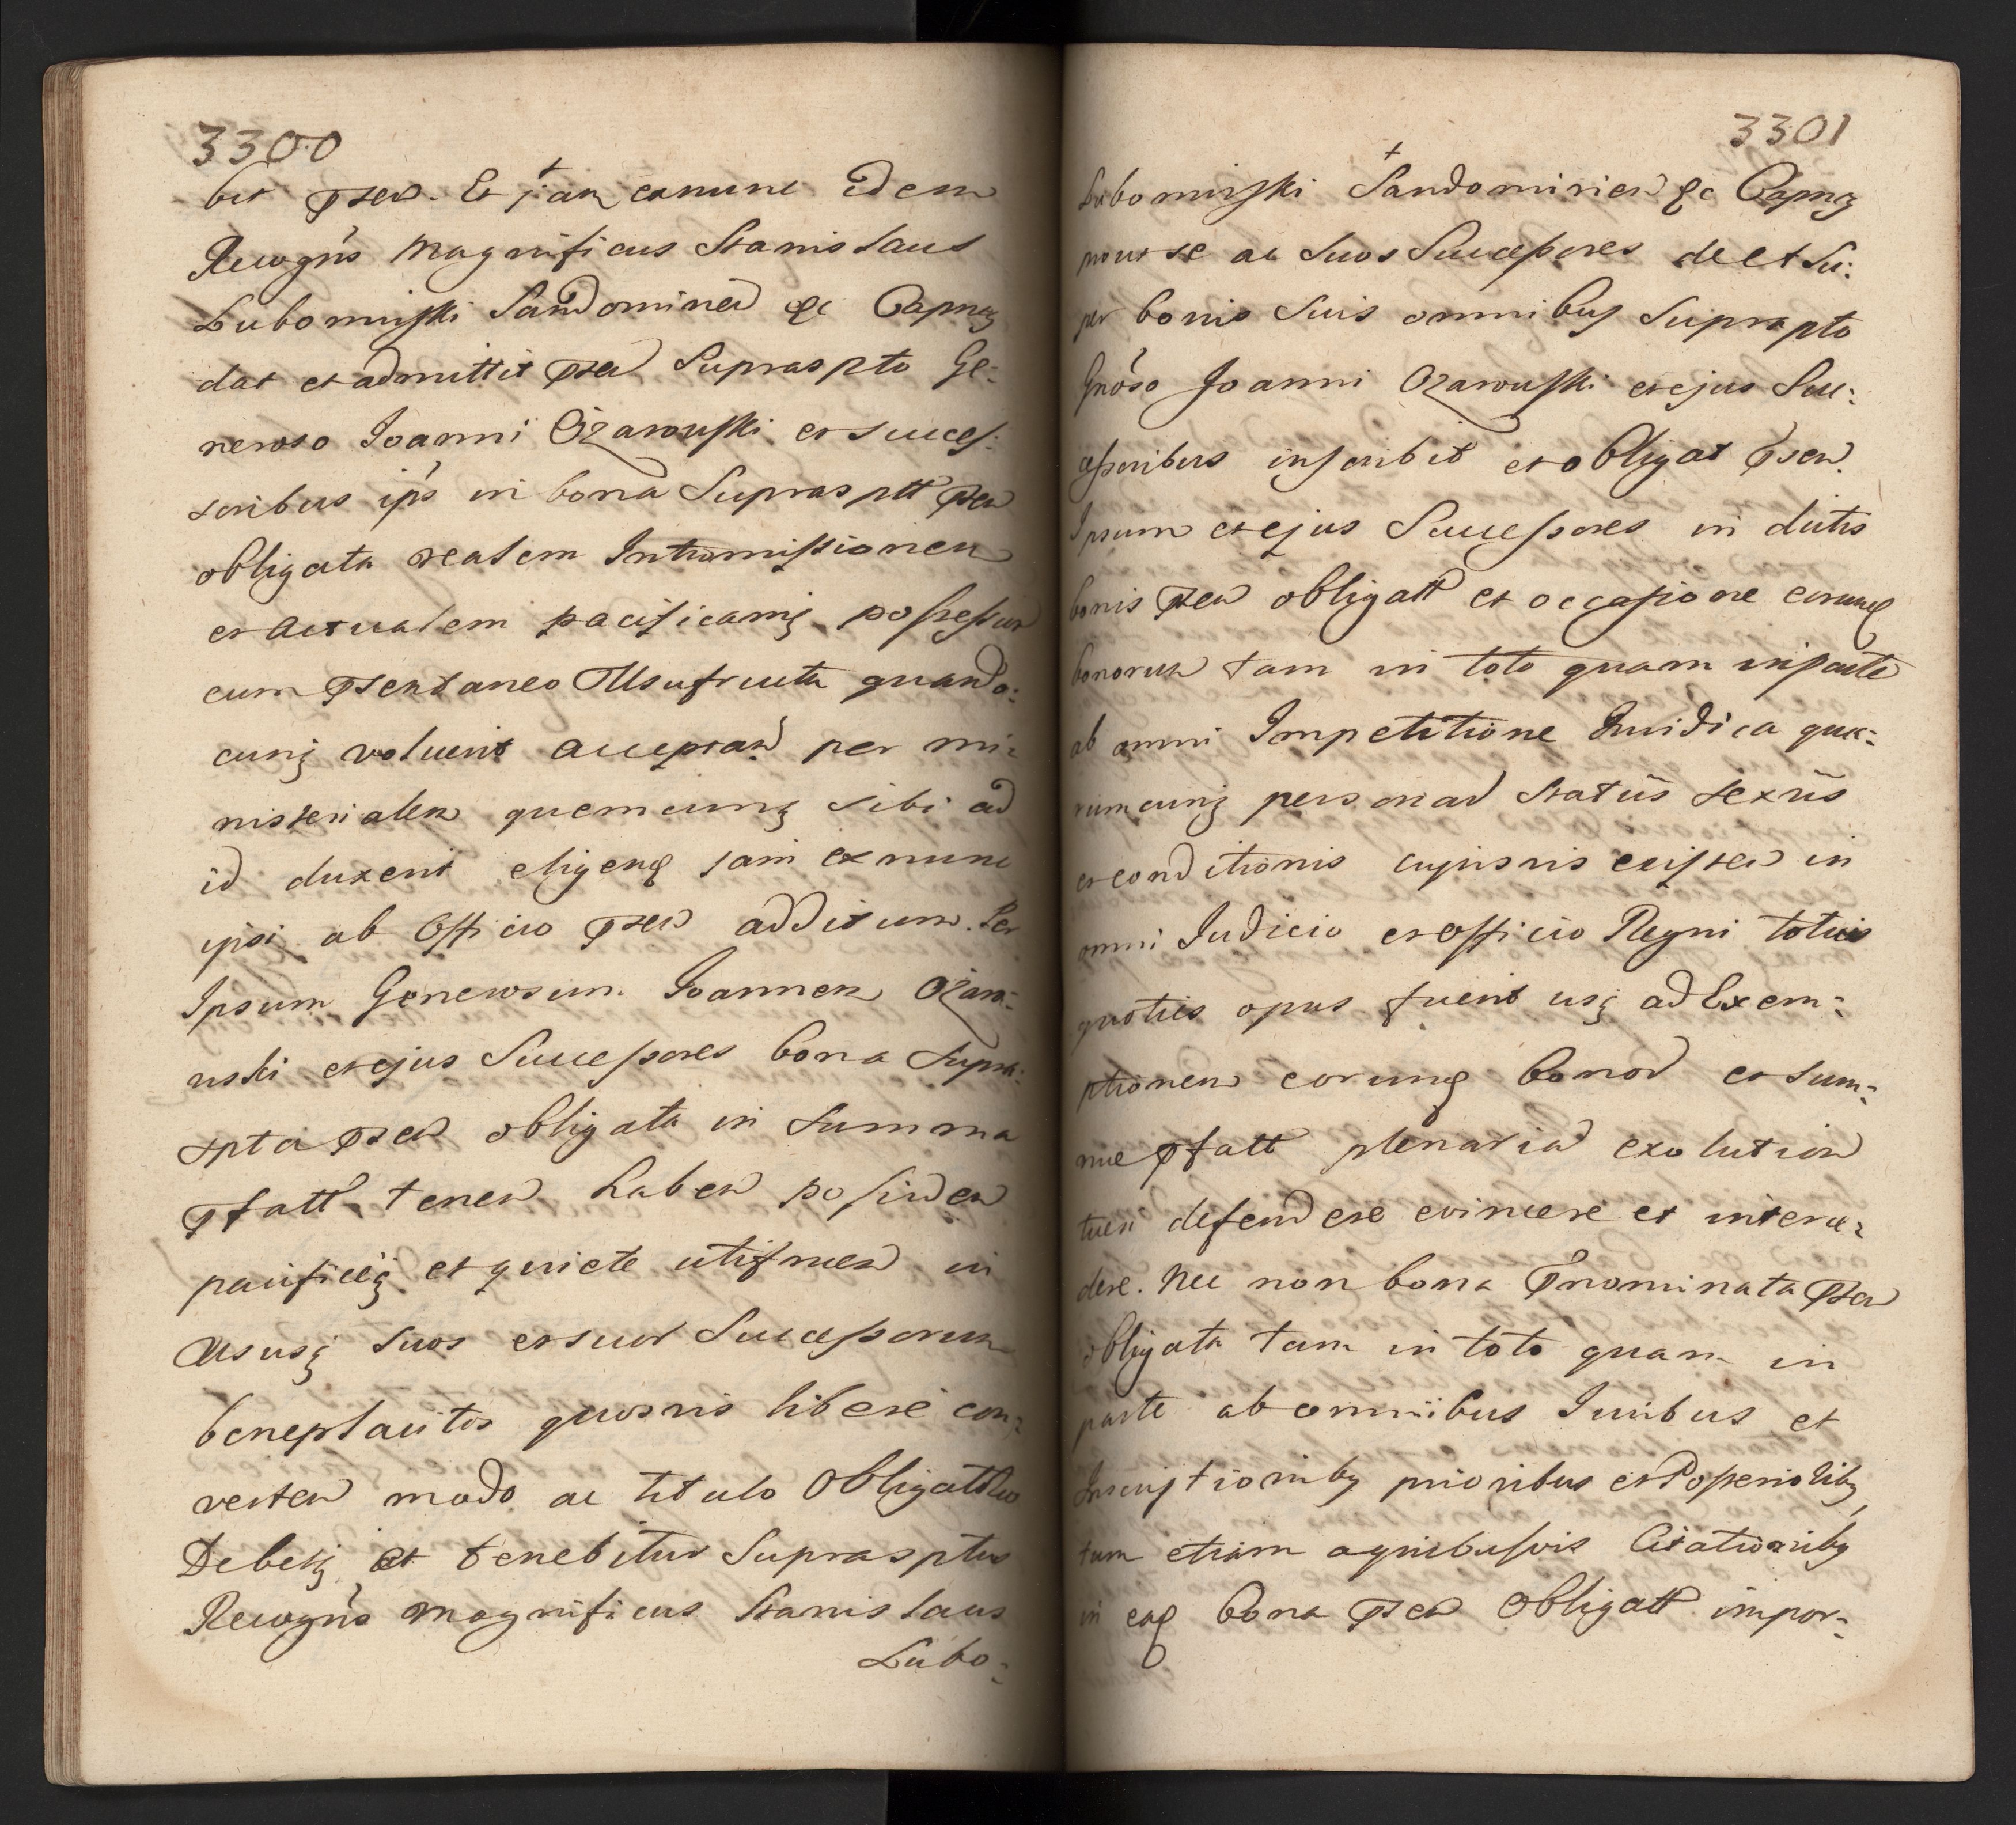 3300
bit pñsen. Et jam exnunc idem
Recogñs Magnificus Stanislaus
Lubomirski Sandomirien &c Capneus
dat et admittit pñsen Supraspto Ge:
neroso Joanni Ożarowski et Succes:
soribus ips in bona Supras ptt pñsen
obligata realem Intromissionem
et actualem pacificamq possession
cum pñsentaneo Usufructu quando:
cunq voluerit acceptan per mi:
nisterialem quemcunq sibi ad
id duxerit eligend jam exnunc
ipsi ab Officio pñsen additum. Per
Ipsum Generosum Joannem Ożaro:
wski et ejus Successores bona supra:
spta pñsen obligata in summa
pfatt tenen haben possiden
pacificeq et quiete utifruen in
Ususq suos et suor Successorum
beneplacitos quosvis libere con:
verten modo ac titulo Obligatorio
Debetq et tenebitur Suprasptus
Recogñs Magnificus Stanislaus
Lubo:
3301
Lubomirski Sandomirien &c Capneus
prout se ac suos Successores de et su:
per bonis suis omnibus supraspto
Gnoso Joanni Ożarowski et ejus Suc:
cessoribus inscribit et obligat pñsen.
Ipsum et ejus Successores in dictis
bonis pñsen obligatt et occasione eorund
bonorum tam in toto quam in parte
ab omni Impetitione Juridica qua:
rumcunq personar statûs sexûs
et conditionis cujusvis existen in
omni Judicio et officio Regni totius
quoties opus fuerit usq ad Exem:
ptionem eorund bonor et sum:
mae pfatt plenariã exolution
tueri defendere evincere et interce:
dere. Nec non bona Pnominata pñsen
obligata tam in toto quam in
parte ab omnibus Juribus et
Inscriptionibus prioribus et Posteriorib,
tum etiam a quibusvis Citationibus
in ead bona pñsen Obligatt impor: